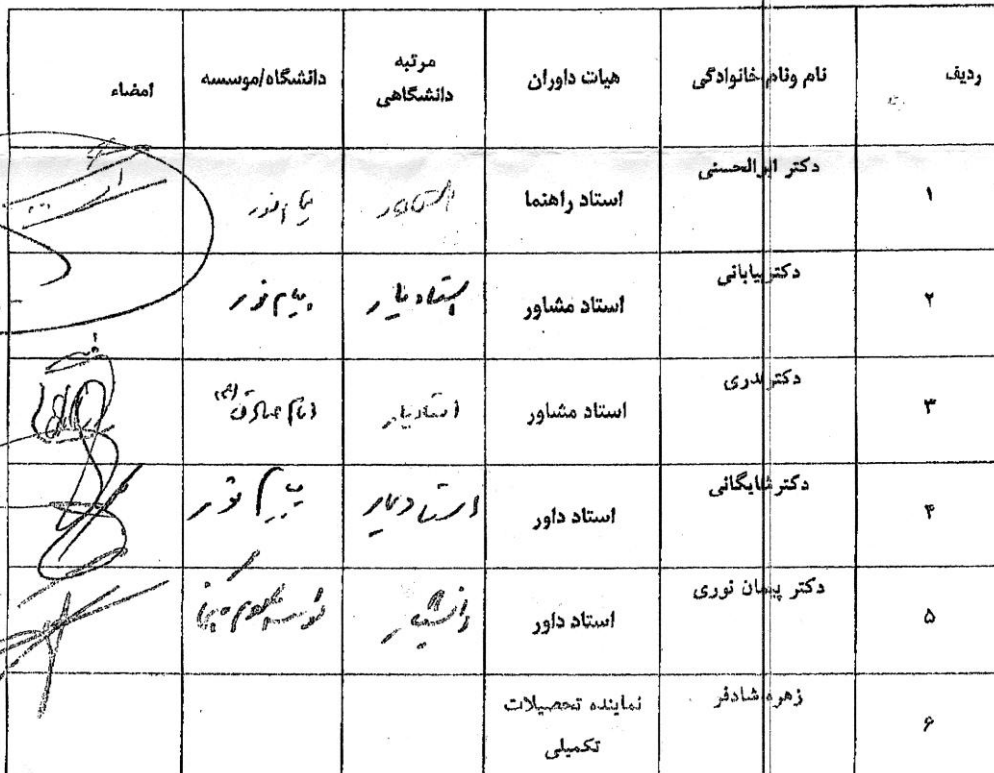 ردیف
نام ونام خانوادگی
هیات داوران
مرتبه
دانشگاهی
دانشگاه/موسسه
امضاء
۱
دکتر ابوالحسنی
استاد راهنما
استادیار
پیام نور
۲
دکتر بیابانی
استاد مشاور
استادیار
پیام نور
۳
دکتر بدری
استاد مشاور
استادیار
امام صادق (ع)
۴
دکتر شایگانی
استاد داور
استادیار
پیام نور
۵
دکتر پیمان نوری
استاد داور
دانشیار
۶
زهره شادفر
نماینده تحصیلات
تکمیلی